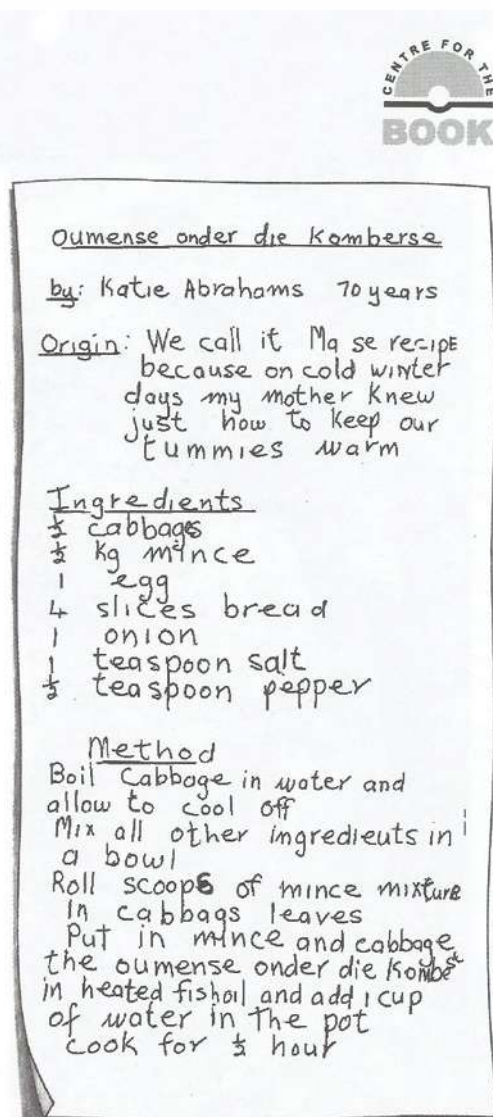 CENTRE FOR THE
BOOK
Oumense onder die Komberse
by: Katie Abrahams 70 years
Origin: We call it Ma se recipe
because on cold winter
days my mother knew
just how to keep our
tummies warm
Ingredients
½ cabbages
½ kg mince
1 egg
4 slices bread
1 onion
1 teaspoon salt
½ teaspoon pepper
Method
Boil cabbage in water and
allow to cool off
Mix all other ingredients in
a bowl
Roll scoops of mince mixture
In cabbags leaves
Put in mince and cabbage
the oumense onder die
in heated fishoil and add 1 cup
of water in the pot
cook for ½ hour